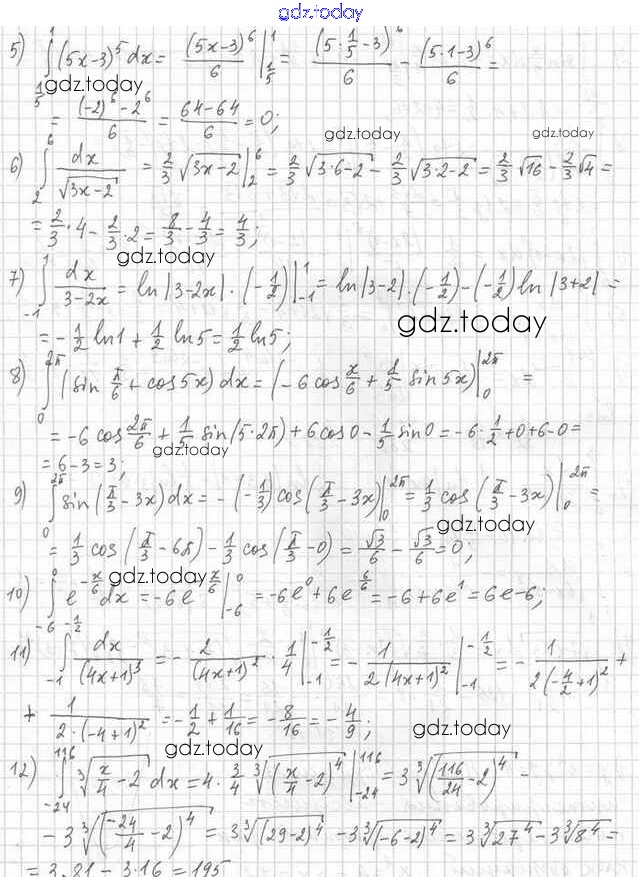 gdz.today
5) ∫_{1/5}^{1} (5x-3)^5 dx = (5x-3)^6/6 |_{1/5}^{1} = (5·1/5-3)^6/6 - (5·1-3)^6/6 =
gdz.today
= ((-2)^6-2^6)/6 = (64-64)/6 = 0;
gdz.today gdz.today
6) ∫_{2}^{6} dx/√(3x-2) = 2/3 √(3x-2) |_{2}^{6} = 2/3 √(3·6-2) - 2/3 √(3·2-2) = 2/3 √16 - 2/3 √4 =
= 2/3·4 - 2/3·2 = 8/3 - 4/3 = 4/3;
gdz.today
7) ∫_{-1}^{1} dx/(3-2x) = ln|3-2x|·(-1/2) |_{-1}^{1} = ln|3-2|·(-1/2)-(-1/2) ln|3+2| =
gdz.today
= -1/2 ln1 + 1/2 ln5 = 1/2 ln5;
8) ∫_{0}^{2π} (sin π/6 + cos5x) dx = (-6 cos x/6 + 1/5 sin5x) |_{0}^{2π} =
= -6 cos 2π/6 + 1/5 sin(5·2π) + 6cos0 - 1/5 sin0 = -6·1/2+0+6-0=
gdz.today
= 6-3=3;
9) ∫_{0}^{2π} sin(π/3-3x)dx = -(-1/3)cos(π/3-3x) |_{0}^{2π} = 1/3 cos(π/3-3x) |_{0}^{2π} =
gdz.today
= 1/3 cos(π/3-6π) - 1/3 cos(π/3-0) = √3/6 - √3/6 = 0;
gdz.today
10) ∫_{-6}^{0} e^{-x/6} dx = -6e^{x/6} |_{-6}^{0} = -6e^0+6e^{6/6} = -6+6e^1 = 6e-6;
11) ∫_{-1}^{-1/2} dx/(4x+1)^3 = - 2/(4x+1)^2 · 1/4 |_{-1}^{-1/2} = - 1/(2(4x+1)^2) |_{-1}^{-1/2} = - 1/(2(-4/2+1)^2) +
+ 1/(2·(-4+1)^2) = -1/2 + 1/16 = -8/16 = -4/9;
gdz.today
gdz.today
12) ∫_{-24}^{116} ∛(x/4-2) dx = 4·3/4 ∛((x/4-2)^4) |_{-24}^{116} = 3∛((116/24-2)^4) -
- 3∛((-24/4-2)^4) = 3∛((29-2)^4) - 3∛((-6-2)^4) = 3∛(27^4) - 3∛(8^4) =
= 3·81 - 3·16 = 195